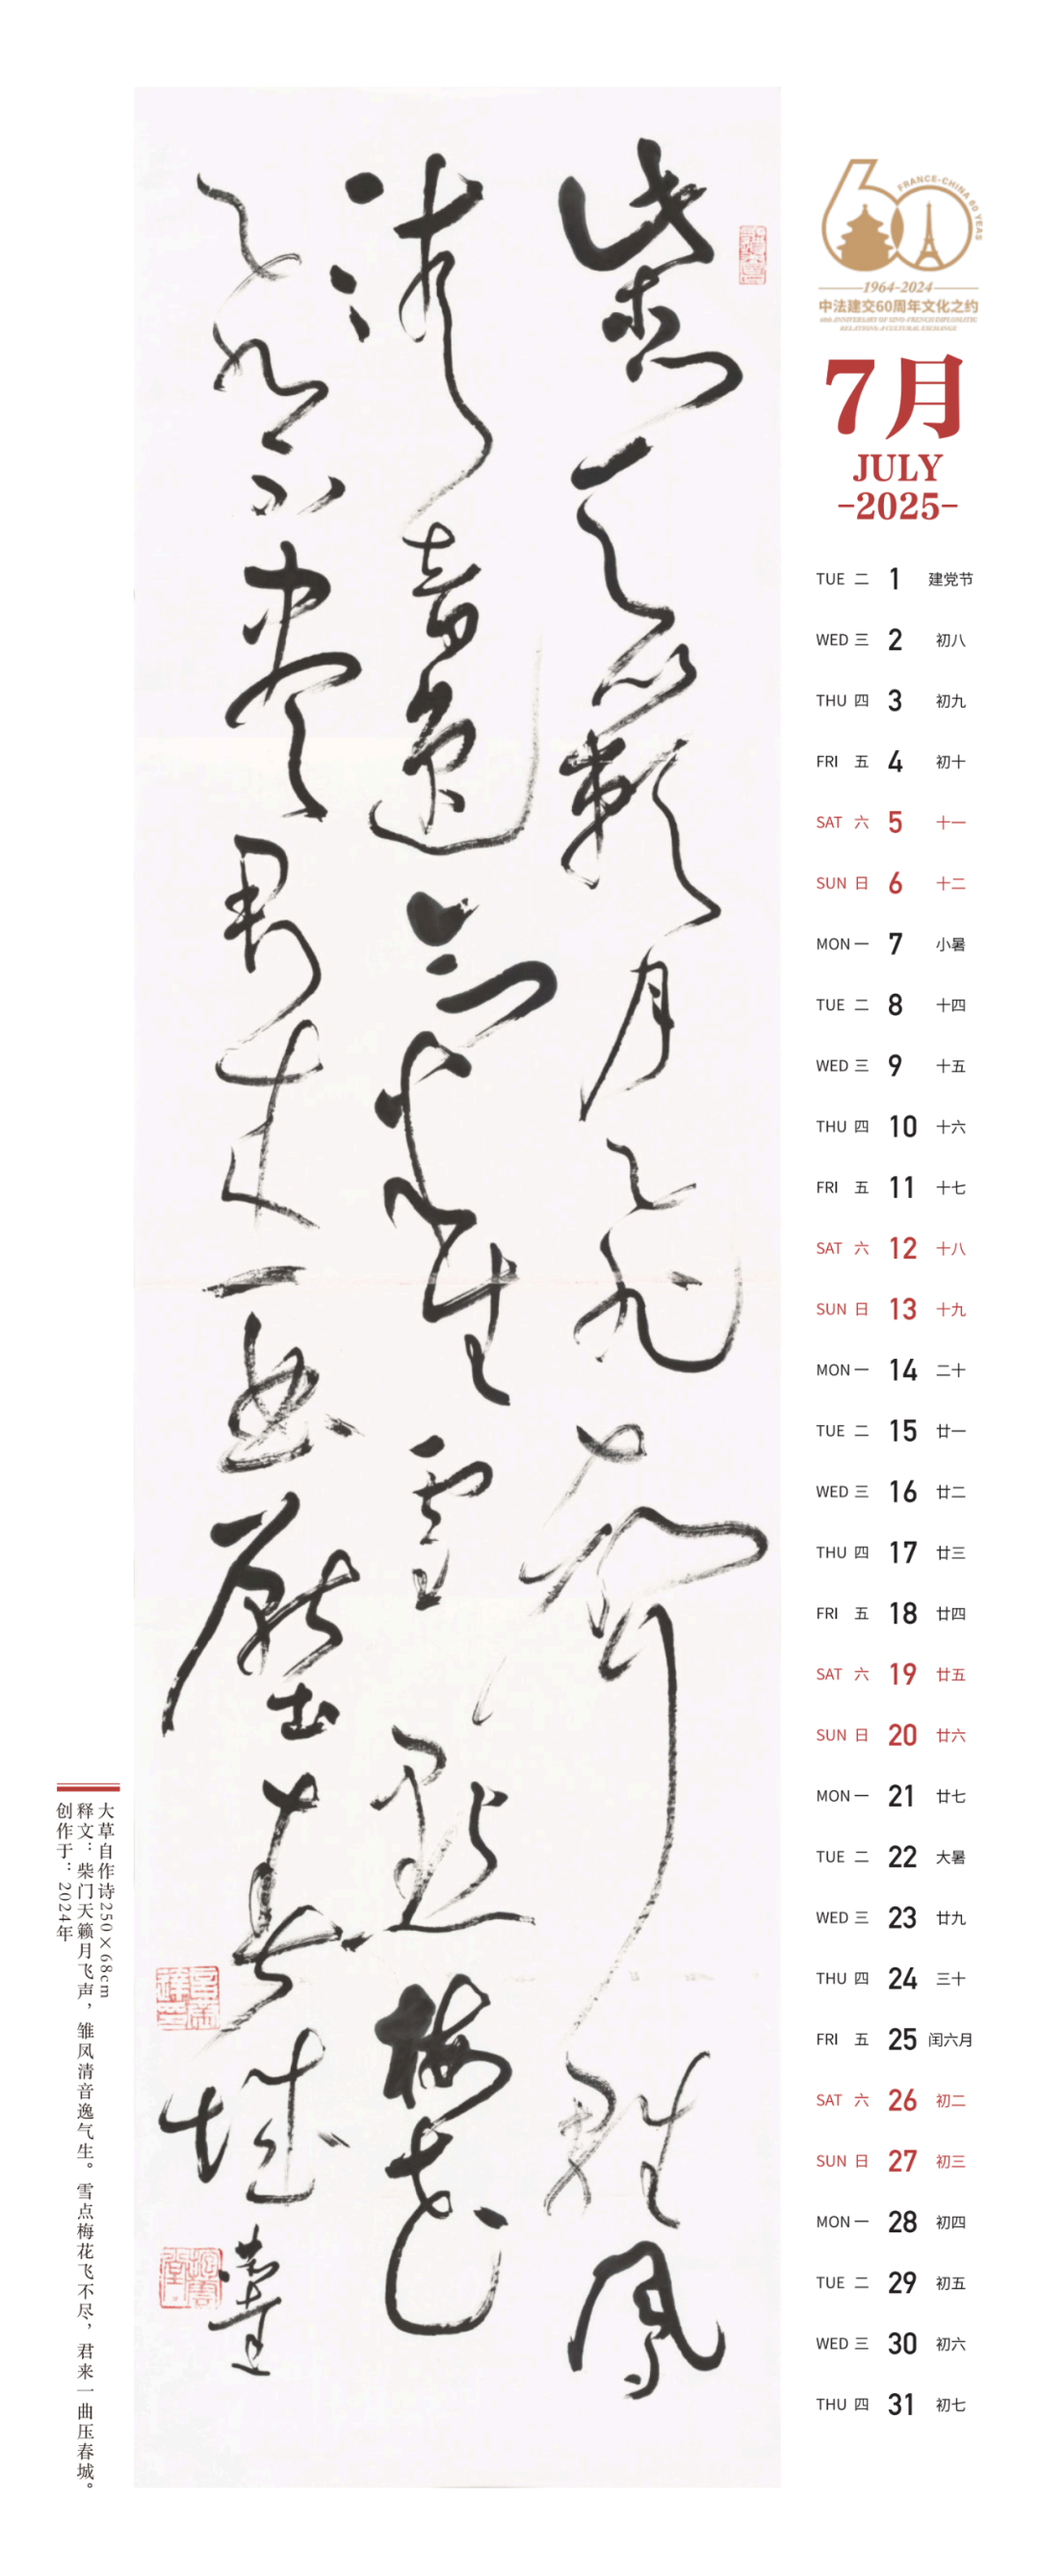 FRANCE-CHINA 60 YEARS
1964-2024
中法建交60周年文化之约
60th ANNIVERSARY OF SINO-FRENCH DIPLOMATIC
RELATIONS: A CULTURAL EXCHANGE
7月
JULY
-2025-
TUE 二 1 建党节
WED 三 2 初八
THU 四 3 初九
FRI 五 4 初十
SAT 六 5 十一
SUN 日 6 十二
MON 一 7 小暑
TUE 二 8 十四
WED 三 9 十五
THU 四 10 十六
FRI 五 11 十七
SAT 六 12 十八
SUN 日 13 十九
MON 一 14 二十
TUE 二 15 廿一
WED 三 16 廿二
THU 四 17 廿三
FRI 五 18 廿四
SAT 六 19 廿五
SUN 日 20 廿六
MON 一 21 廿七
TUE 二 22 大暑
WED 三 23 廿九
THU 四 24 三十
FRI 五 25 闰六月
SAT 六 26 初二
SUN 日 27 初三
MON 一 28 初四
TUE 二 29 初五
WED 三 30 初六
THU 四 31 初七
柴门天籁月飞声雏凤
清音逸气生雪点梅花
飞不尽君来一曲压春城
大草自作诗250×68cm
释文：柴门天籁月飞声，雏凤清音逸气生。雪点梅花飞不尽，君来一曲压春城。
创作于：2024年